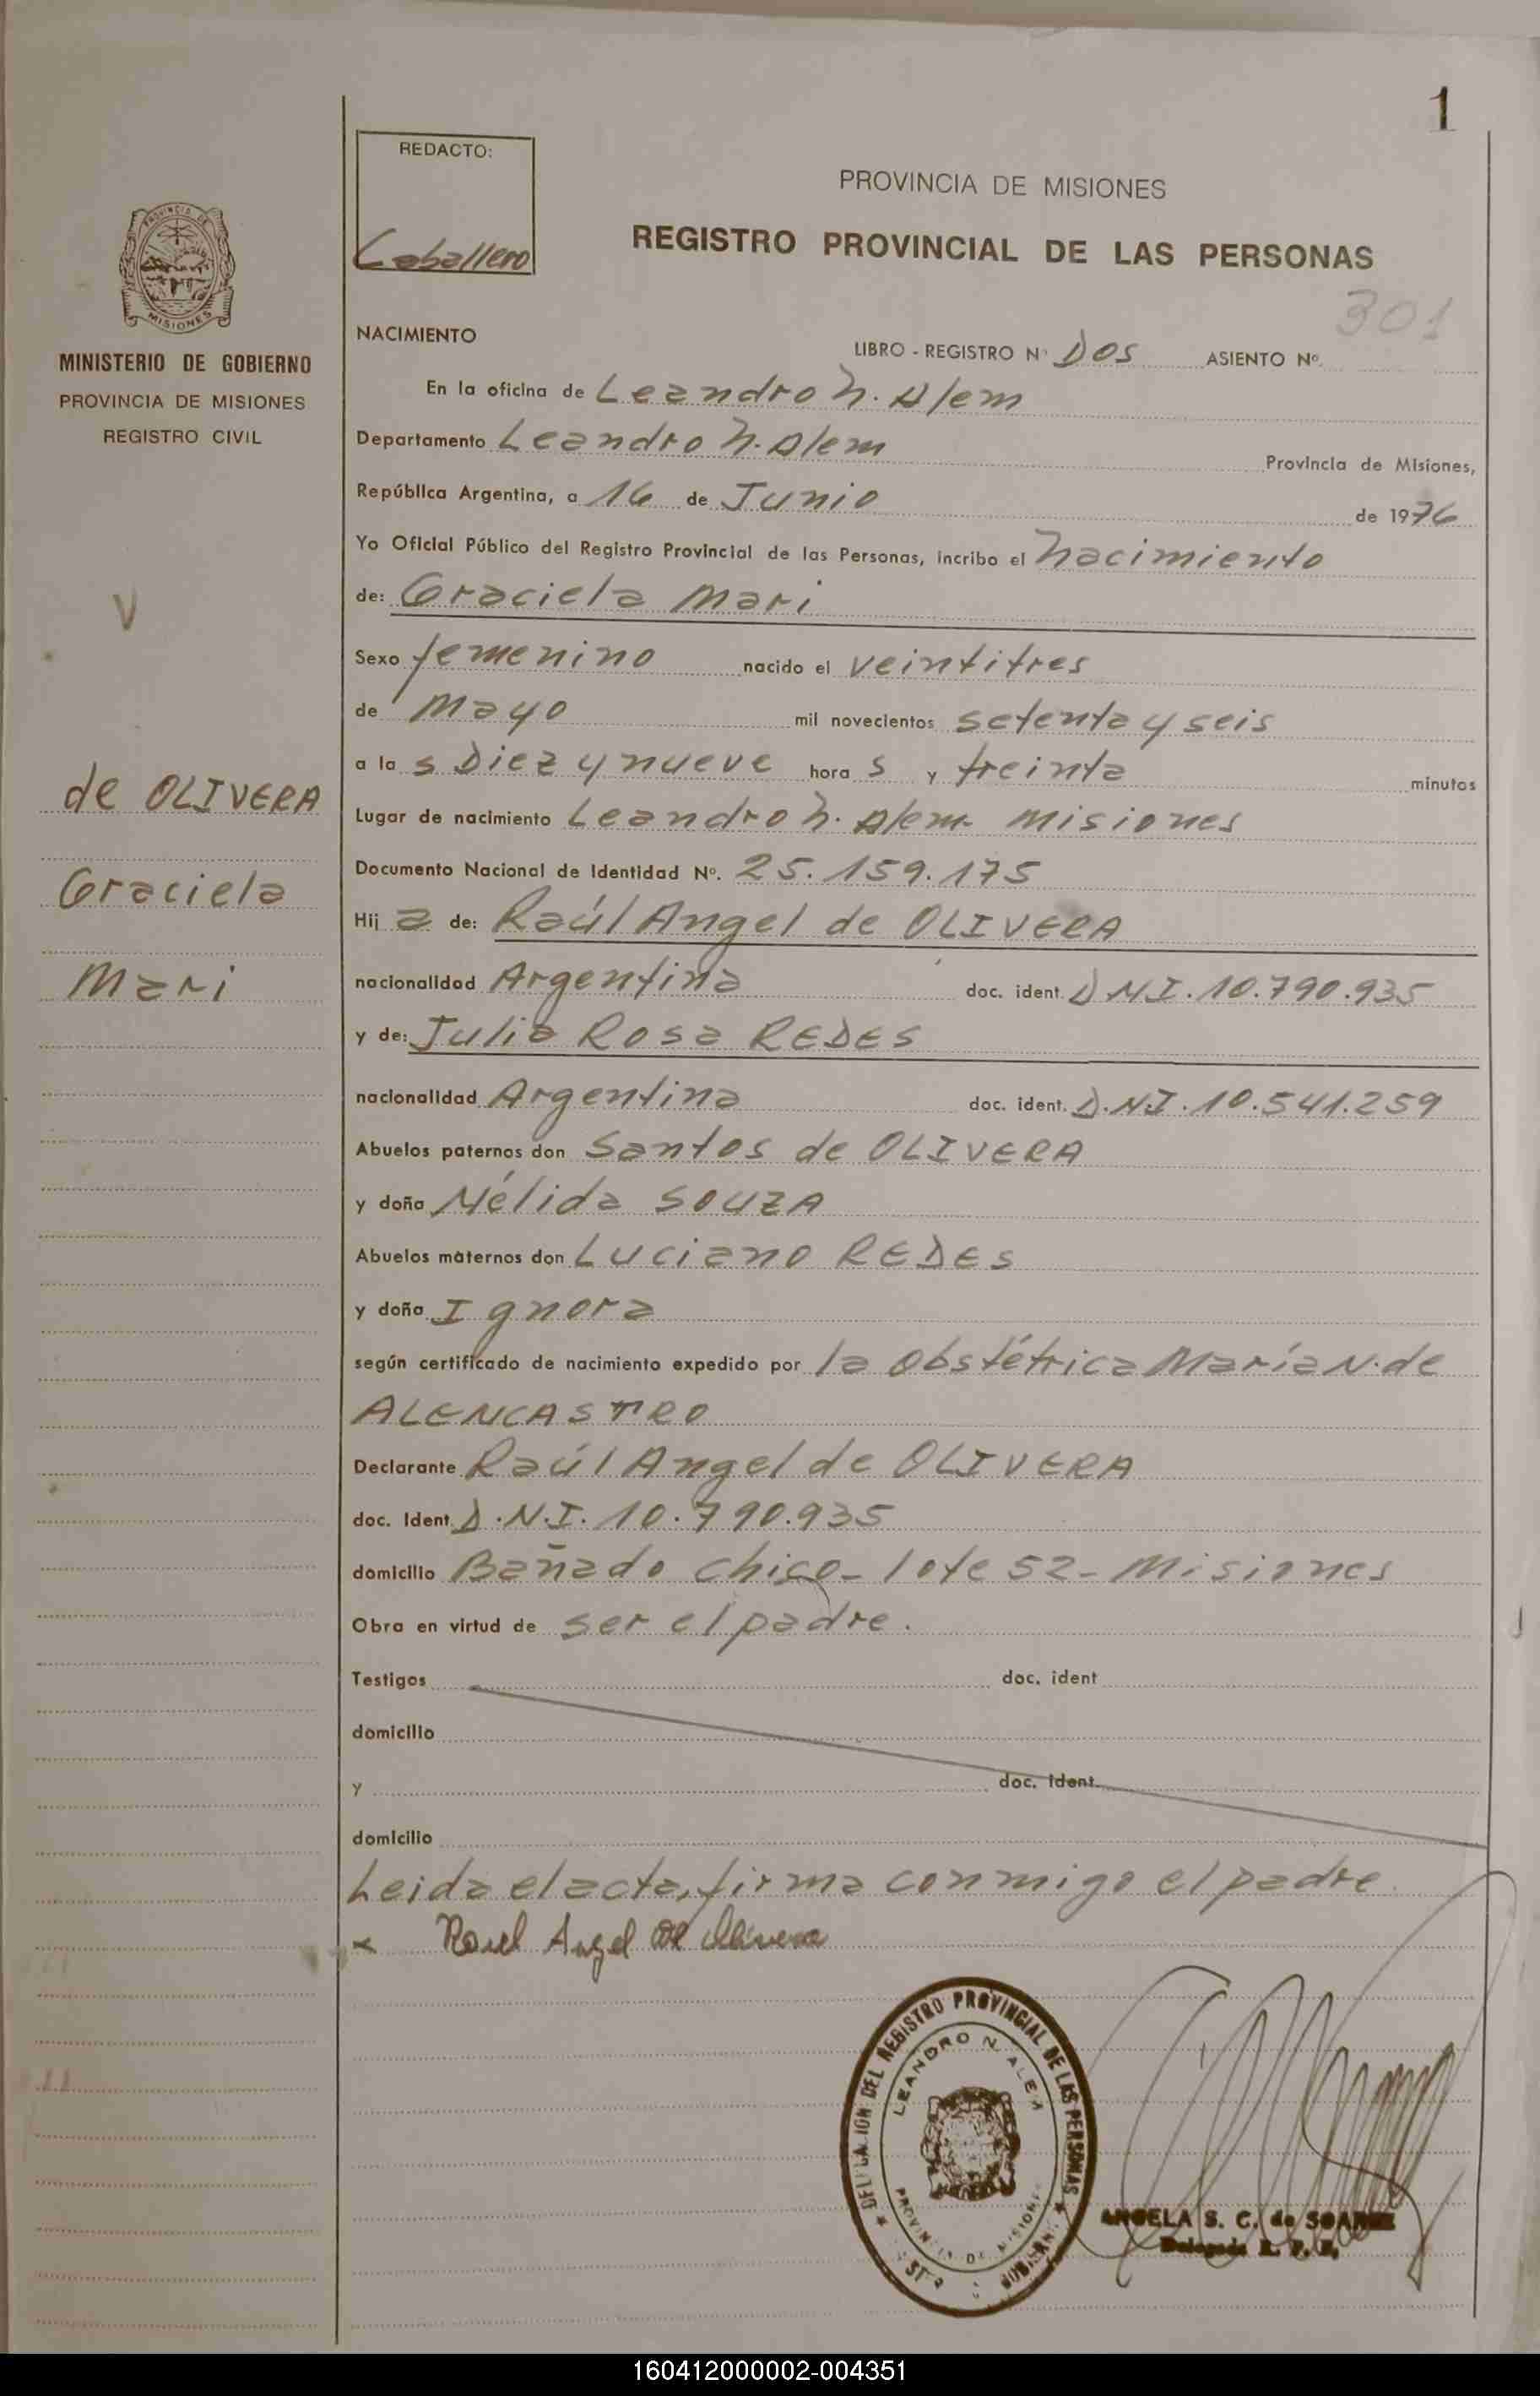 1
REDACTO:
Caballero
PROVINCIA DE MISIONES
REGISTRO PROVINCIAL DE LAS PERSONAS
PROVINCIA DE
MISIONES
MINISTERIO DE GOBIERNO
PROVINCIA DE MISIONES
REGISTRO CIVIL
V
de OLIVERA
Graciela
Mari
301
NACIMIENTO
LIBRO - REGISTRO Nº DOS ASIENTO Nº.
En la oficina de Leandro N. Alem
Departamento Leandro N. Alem Provincia de Misiones,
República Argentina, a 16 de Junio de 1976
Yo Oficial Público del Registro Provincial de las Personas, incribo el nacimiento
de: Graciela Mari
Sexo femenino nacido el veintitres
de Mayo mil novecientos setenta y seis
a la s Diez y nueve hora s y treinta minutos
Lugar de nacimiento Leandro N. Alem- Misiones
Documento Nacional de Identidad Nº. 25.159.175
Hij a de: Raúl Angel de OLIVERA
nacionalidad Argentina doc. ident. D.N.I. 10.790.935
y de: Julia Rosa REDES
nacionalidad Argentina doc. ident. D.N.I. 10.541.259
Abuelos paternos don Santos de OLIVERA
y doña Nélida SOUZA
Abuelos maternos don Luciano REDES
y doña Ignora
según certificado de nacimiento expedido por la obstétrica María N. de
ALENCASTRO
Declarante Raúl Angel de OLIVERA
doc. Ident D.N.I. 10.790.935
domicilio Bañado chico- lote 52- Misiones
Obra en virtud de ser el padre.
Testigos doc. ident
domicilio
y doc. ident.
domicilio
Leida el acta, firma conmigo el padre
x Raul Angel De Olivera
DEL REGISTRO PROVINCIAL DE LAS PERSONAS
LEANDRO N. ALEM
PROVINCIA DE MISIONES
ANGELA S. C. de SOAREZ
Delegada R. P. P.
160412000002-004351